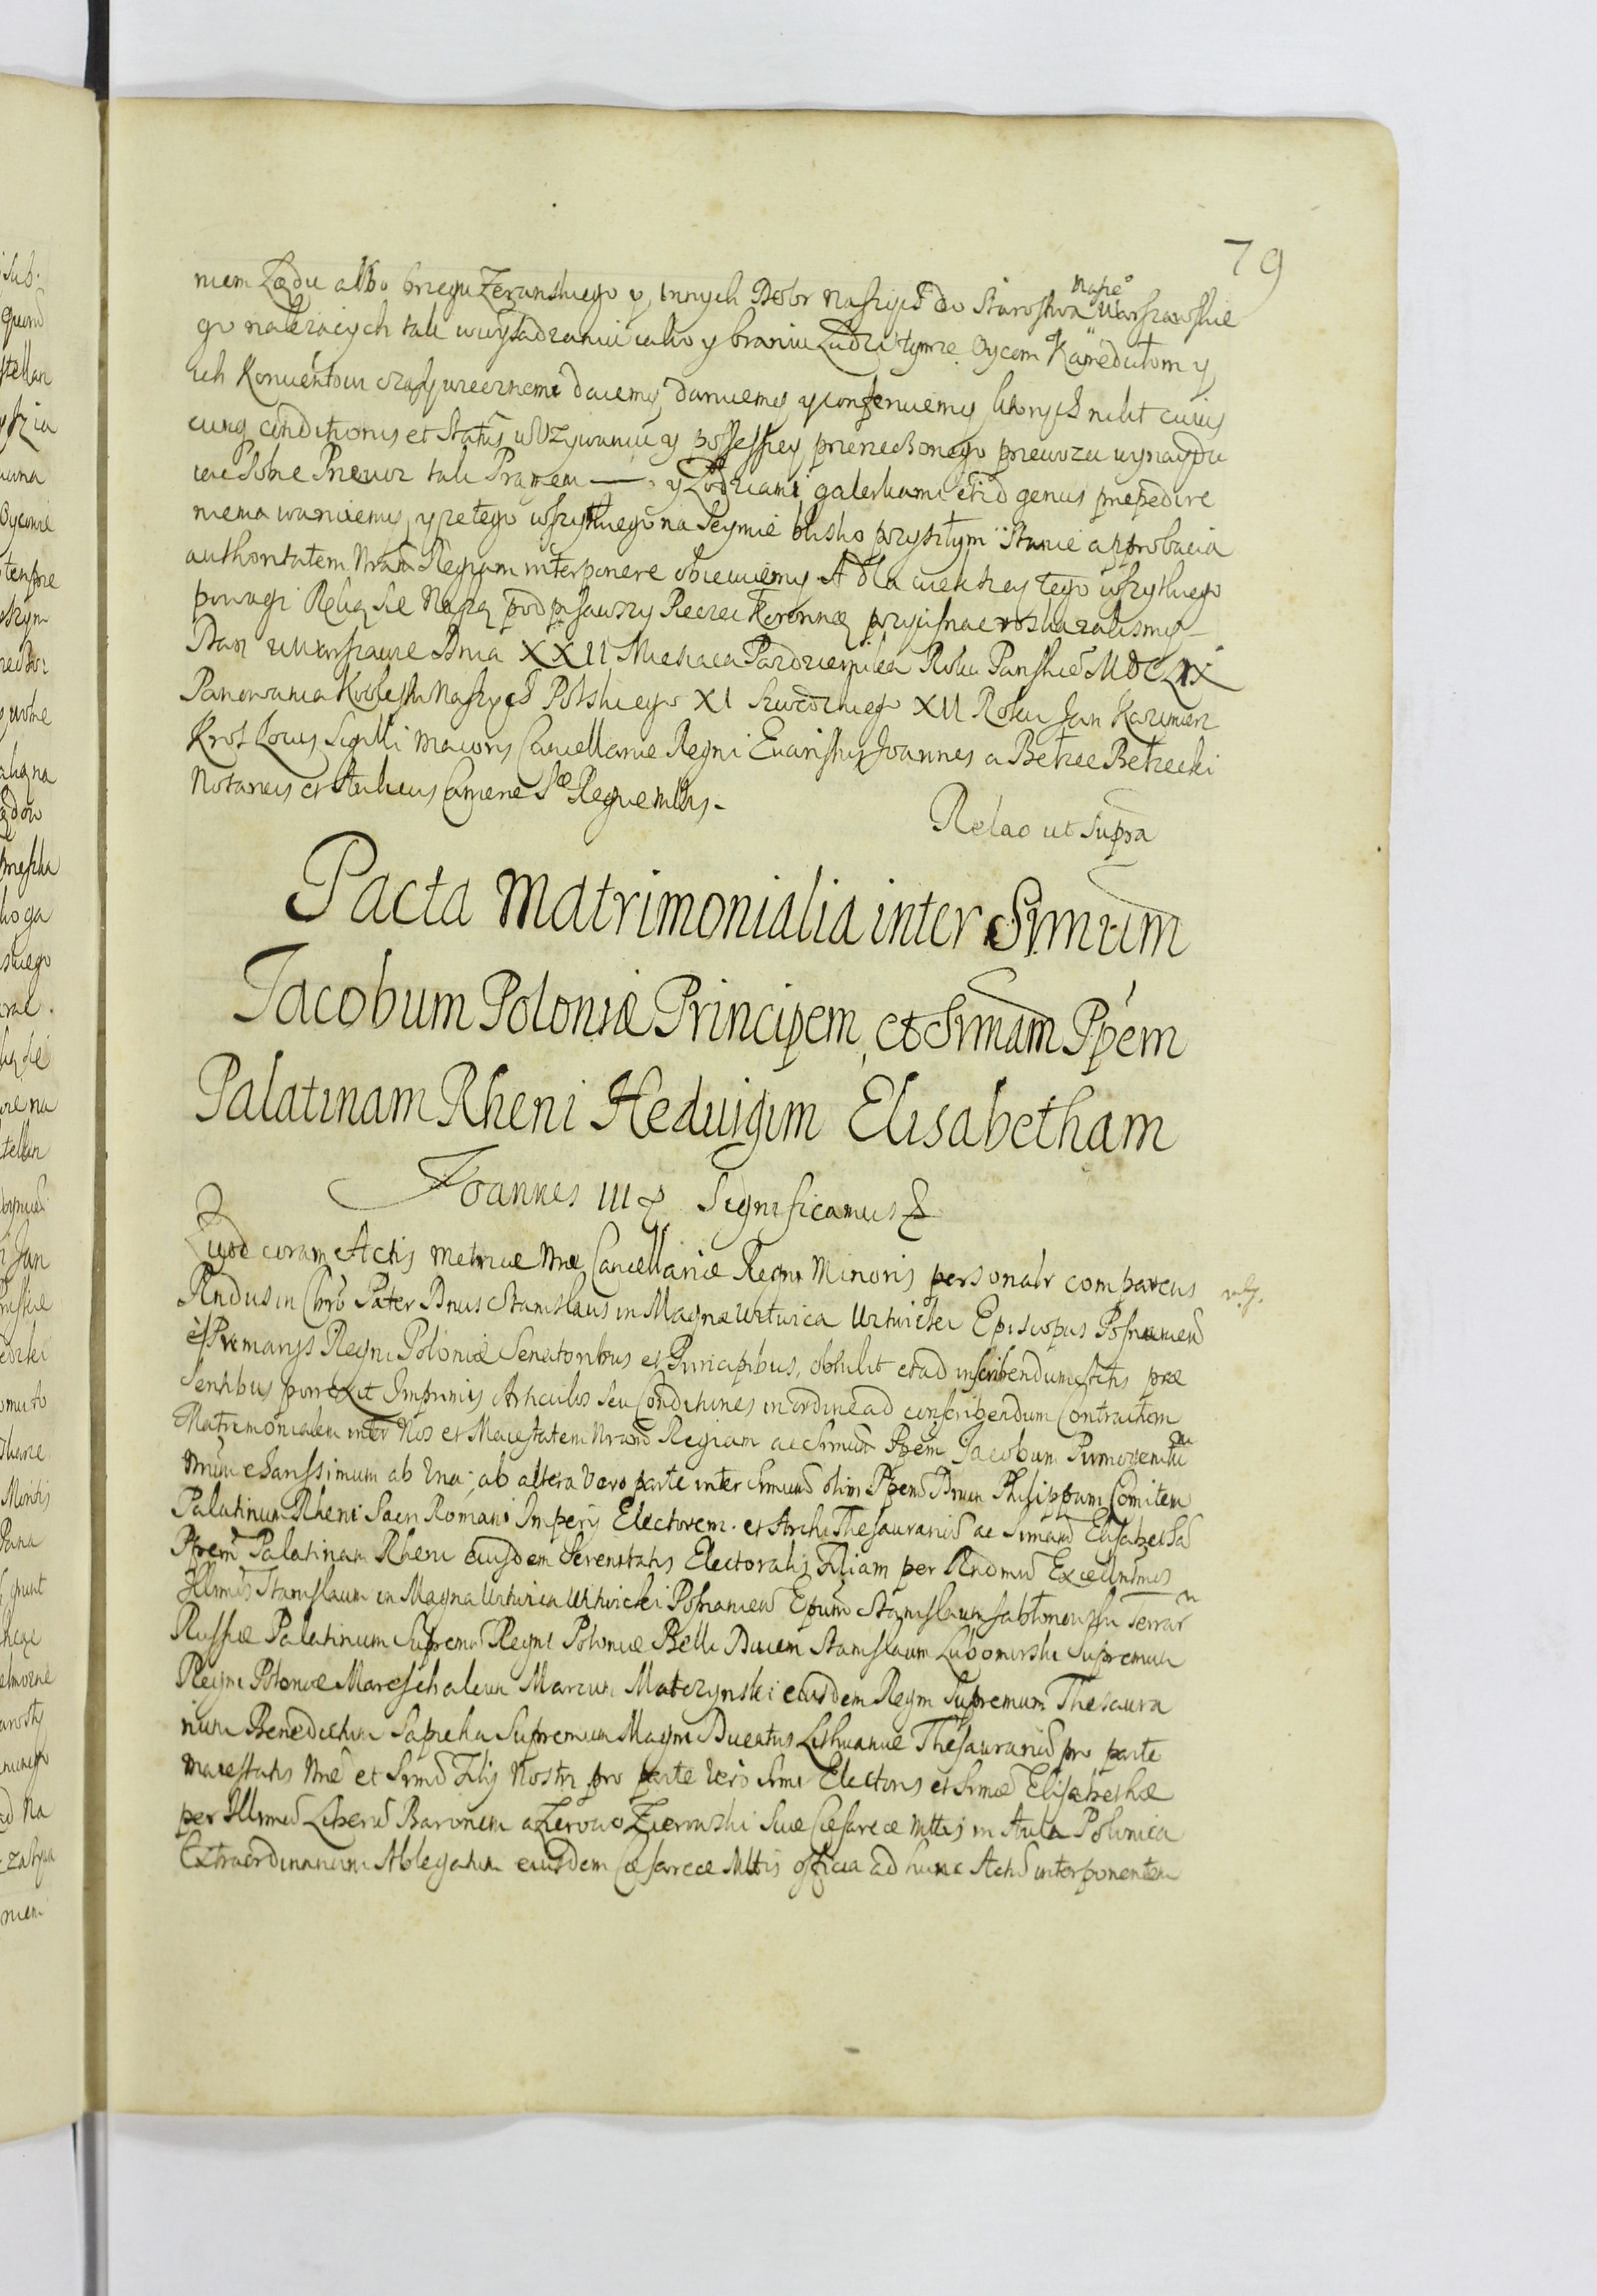 79
niem Lądu albo brzegu Zeranskiego y innych Dobr naszych do Starostwa Naszeo Warszawskie
go należących tak wwysadzaniu iako y braniu Ludzi tymze Oycom Kamedułom y
ich Konwentowi czasy wiecznemi daiemy, daruiemy y conferuiemy
cunq conditionis et Status w Vzywaniu y possessiey przerzeczonego przewozu
Przewoz tak Pramem — y Łodziami galerkami et id genus præpedire
niema waruiemy, y ze tego wszytkiego na Seymie blisko przyszłym Stanie approbacia
authoritatem Nram Regiam interponere obiecuiemy A dla wiekszey tego wszytkiego
powagi Ręką się Naszą podpisawszy Pieczęć Koronną przycisnąc roskazalismy
Dan w Warszawie Dnia XXII Miesiąca Pazdziernika Roku Panskieo MDCLIX
Panowania Krolestw Naszych Polskiego XI Szwedzkiego XII Roku Jan Kazimierz
Krol Locus Sigilli maioris Cancellariæ Regni Evaristus Joannes a Bełzec Bełzecki
Notarius et Aulicus Cameræ Sæ Regiæ mttis.
Relao ut Supra
Pacta Matrimonialia inter Srmum
Jacobum Poloniæ Principem, et Srmam Ppem
Palatinam Rheni Heduigim Elisabetham
Joannes III & Significamus &
Quod coram Actis Metricæ Nræ Cancellariæ Regni Minoris personalr comparens
Rndus in Chro Pater Dnus Stanislaus in Magna Witwica Witwicki Episcopus Posnanien
è Primarys Regni Poloniæ Senatoribus et Principibus, obtulit et ad inscribendum Actis præ
sentibus porrexit Imprimis Articulos seu Conditiones in ordine ad conscribendum Contractum
Matrimonialem inter Nos et Maiestatem Nram Regiam ac Srmum Ppem Jacobum Primogenitu
Nrum Charissimum ab Una; ab altera Vero parte inter Srmum olim Ppem Dnum Philippum Comitem
Palatinum Rheni Sacri Romani Imperij Electorem. et Archi Thesaurarium ac Srmam Elisabetham
Ppem Palatinam Rheni eiusdem Serenitatis Electoralis Filiam per Rndmum Excellmos
Illmos Stanislaum in Magna Witwica Witwicki Posnanien Epum Stanislaum Jabłonowski Terrar
Russiæ Palatinum Supremu Regni Poloniæ Belli Ducem Stanislaum Lubomirski Supremum
Regni Poloniæ Mareschalcum Marcum Matczynski eiusdem Regni Supremum Thesaura
rium Benedictum Sapieha Supremum Magni Ducatus Lithuaniæ Thesaurarium pro parte
maiestatis Nræ et Srmi Filij Nostri pro parte Vero Srmi Electoris et Srmæ Elisabethæ
per Illmum Liberum Baronem a Zerowo Zierowski Suæ Cæsareæ Mttis in Aula Polonica
Extraordinarium Ablegatum eiusdem Cæsareæ Mttis officia ad hunc Actum interponentem